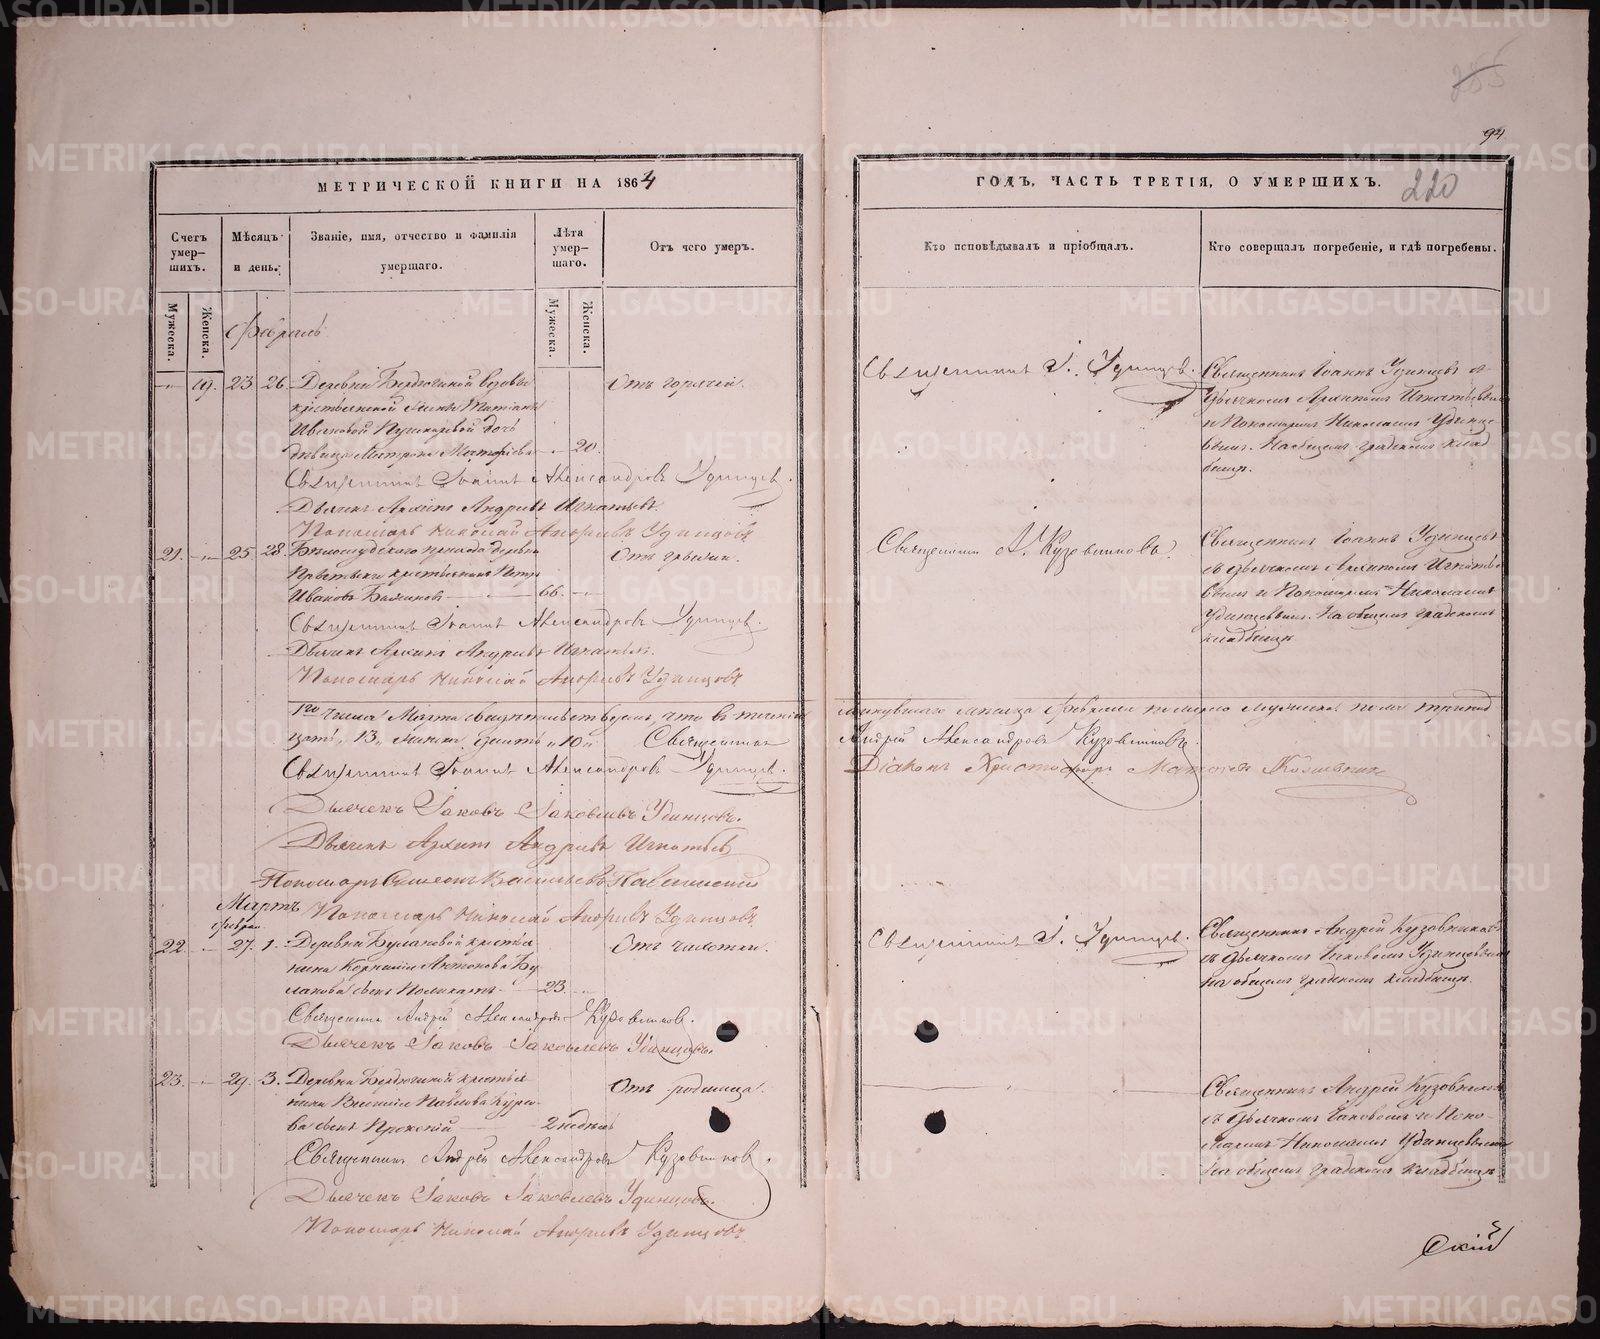 285
94
МЕТРИЧЕСКОЙ КНИГИ НА 1864
ГОДЪ, ЧАСТЬ ТРЕТІЯ, О УМЕРШИХЪ.
220
Счетъ умер-шихъ.
Мѣсяцъ и день.
Званіе, имя, отчество и фамилія умершаго.
Лѣта умер-шаго.
Отъ чего умеръ.
Кто исповѣдывалъ и пріобщалъ.
Кто совершалъ погребеніе, и гдѣ погребены.
Мужеска.
Женска.
Мужеска.
Женска.
Февраль
19. 23 26. Деревни Бердюгиной вдовы
крестьянской жены Татіаны
Ивановой Пушкаревой дочь
дѣвица Матрона 20.
Отъ горячки.
Священникъ І. Удинцевъ.
Священникъ Іоаннъ Удинцевъ съ
Дьячкомъ Архипомъ Игнатьевымъ
и Пономаремъ Николаемъ Удинце
вымъ. На общемъ градскомъ клад
бищѣ.
Священникъ Іоаннъ Александровъ Удинцевъ.
Дьячекъ Архипъ Андреевъ Игнатьевъ.
Пономарь Николай Андреевъ Удинцовъ
21. 25 28. Бѣлослудскаго прихода деревни
крестьянинъ Петръ
Ивановъ Баженовъ 66.
Отъ грыжи.
Священникъ А. Кузовниковъ.
Священникъ Іоаннъ Удинцевъ
съ дьячкомъ Архипомъ Игнатье
вымъ и Пономаремъ Николаемъ
Удинцевымъ. На общемъ градскомъ
кладбищѣ
Священникъ Іоаннъ Александровъ Удинцевъ.
Дьячекъ Архипъ Андреевъ Игнатьевъ.
Пономарь Николай Андреевъ Удинцовъ
1го числа Марта свидѣтельствуемъ, что въ теченіи минувшаго мѣсяца Февраля померло мужеска пола тринад
цать „13„ женска десять „10„ Священникъ Андрей Александровъ Кузовниковъ.
Священникъ Іоаннъ Александровъ Удинцевъ. Діаконъ Христофоръ
Дьячекъ Іаковъ Іаковлевъ Удинцовъ.
Дьячекъ Архипъ Андреевъ Игнатьевъ
Пономарь Симеонъ Васильевъ
Пономарь Николай Андреевъ Удинцовъ
Мартъ
Феврал.
22. 27. 1. Деревни Булановой крестья
нина Корнилія Антонова Бу
ланова сынъ Поликарпъ 23.
Отъ чахотки.
Священникъ І. Удинцевъ.
Священникъ Андрей Кузовниковъ
съ дьячкомъ Іаковомъ Удинцовымъ
на общемъ градскомъ кладбищѣ.
Священникъ Андрей Александровъ Кузовниковъ.
Дьячекъ Іаковъ Іаковлевъ Удинцовъ.
23. 29. 3. Деревни Бердюгиной крестья
нина Павлова
сынъ Прокопій 2 недѣль
Отъ родимца.
Священникъ Андрей Кузовниковъ
съ дьячкомъ Іаковомъ и Поно-
маремъ Николаемъ Удинцевымъ
на общемъ градскомъ кладбищѣ
Священникъ Андрей Александровъ Кузовниковъ.
Дьячекъ Іаковъ Іаковлевъ Удинцовъ.
Пономарь Николай Андреевъ Удинцовъ
скій
METRIKI.GASO-URAL.RU